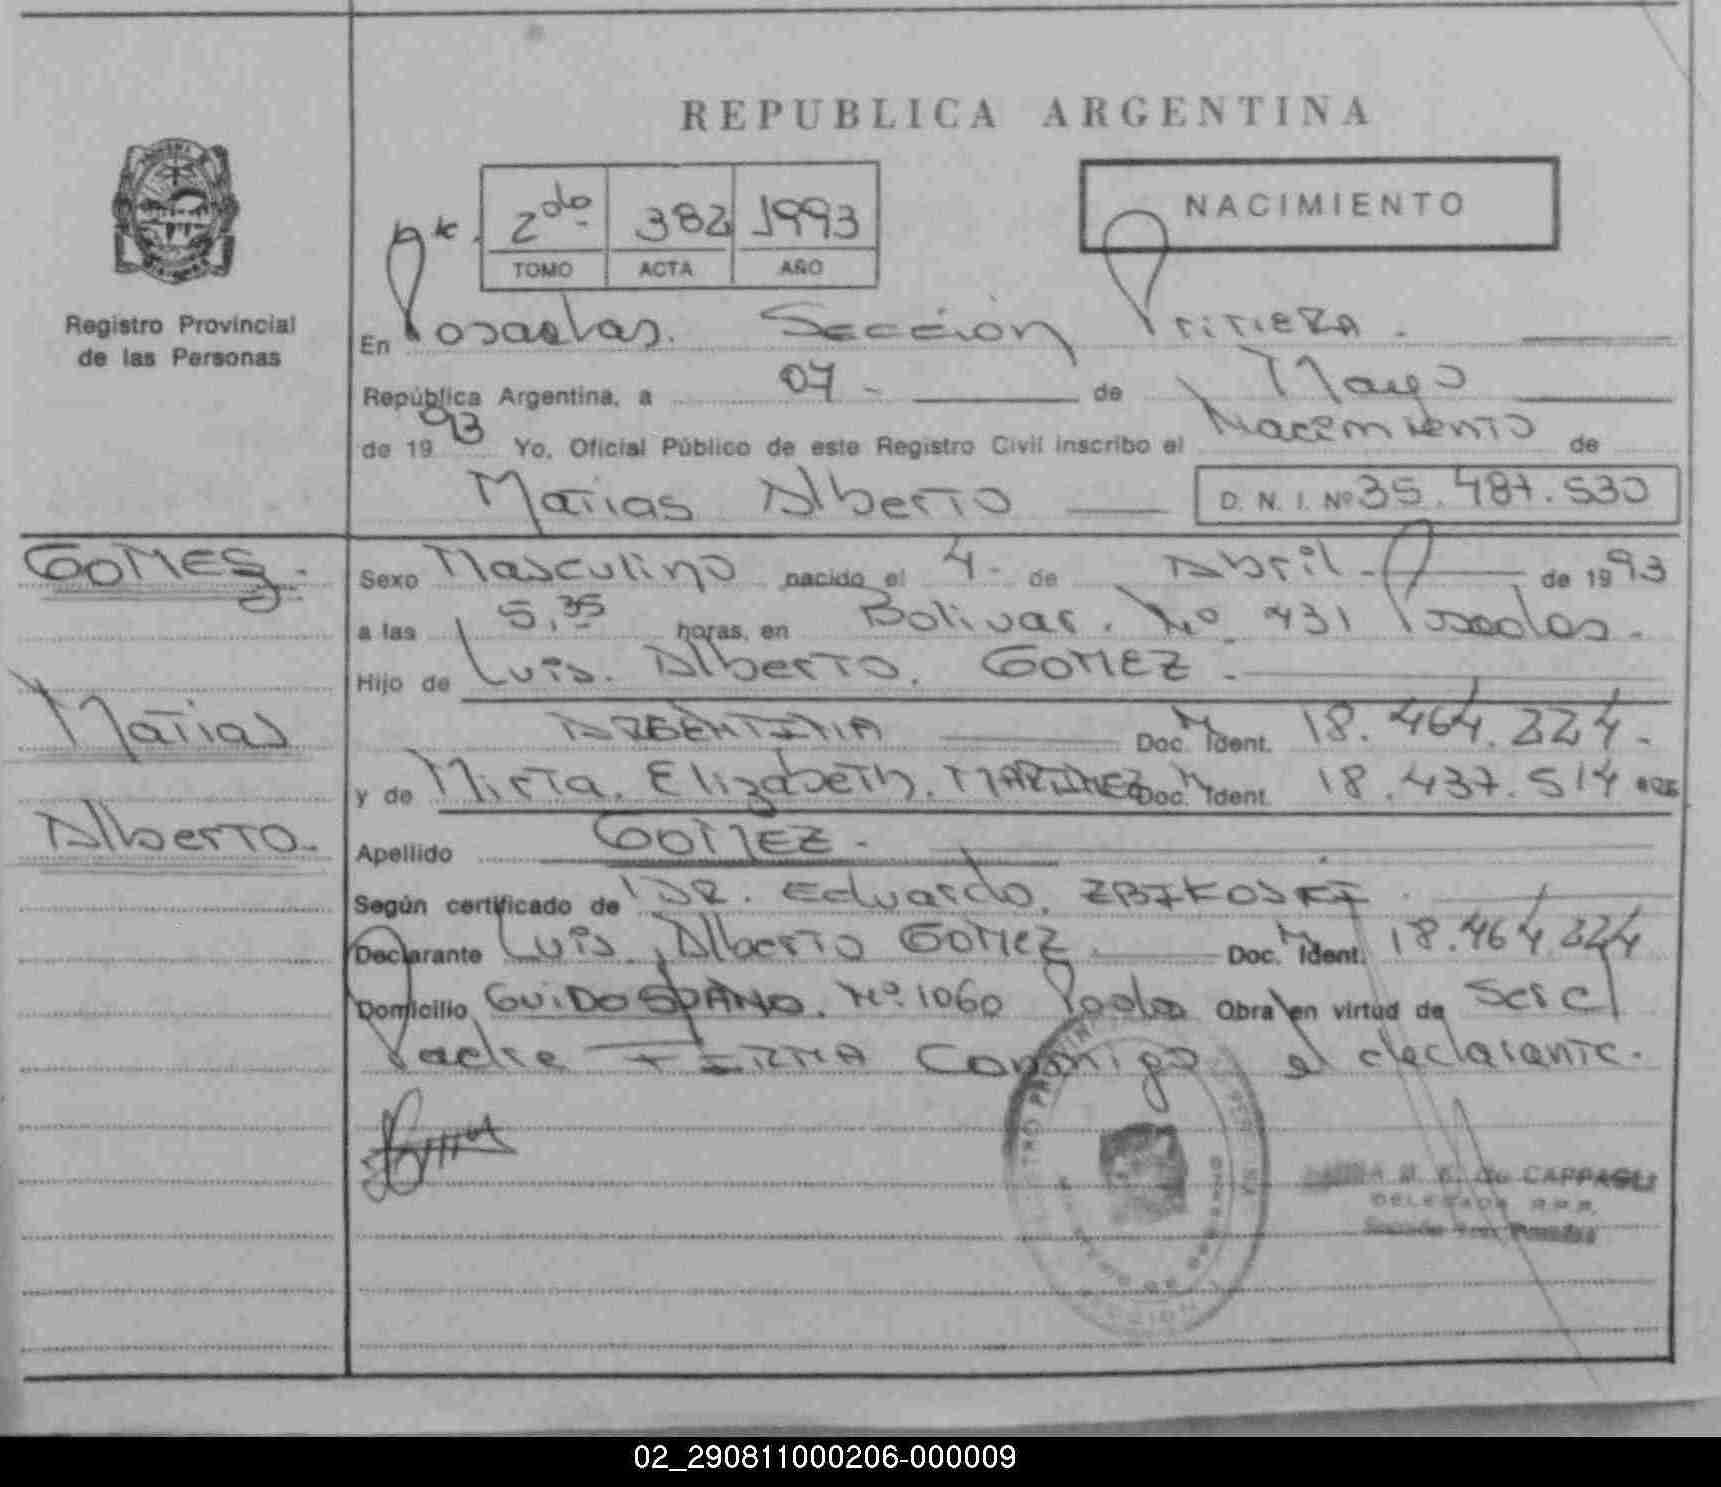 REPUBLICA ARGENTINA
NACIMIENTO
2do 382 1993
TOMO ACTA AÑO
Registro Provincial
de las Personas
En Posadas. Sección Primera.
República Argentina, a 07 - de Mayo
de 1993 Yo, Oficial Público de este Registro Civil inscribo el Nacimiento de
Matias Alberto D. N. I. Nº 35.487.530
GOMEZ.
Sexo Masculino nacido el 4 - de Abril - de 1993
a las 5,35 horas, en Bolivar. Nº 431 Posadas.
Hijo de Luis. Alberto. GOMEZ -
Matias
ARGENTINA Doc. Ident. 18.464.224 -
y de Mirta. Elizabeth. MARTINEZ Doc. Ident. 18.437.514 ARG
Alberto -
Apellido GOMEZ -
Según certificado de DR. Eduardo.
Declarante Luis Alberto GOMEZ Doc. Ident. 18.464.224
Domicilio GUIDO SPANO. Nº 1060 Pdas Obra en virtud de Ser el
Padre FIRMA Conmigo el declarante.
de CAPPAGLI
DELEGADA R.P.P.
02_290811000206-000009